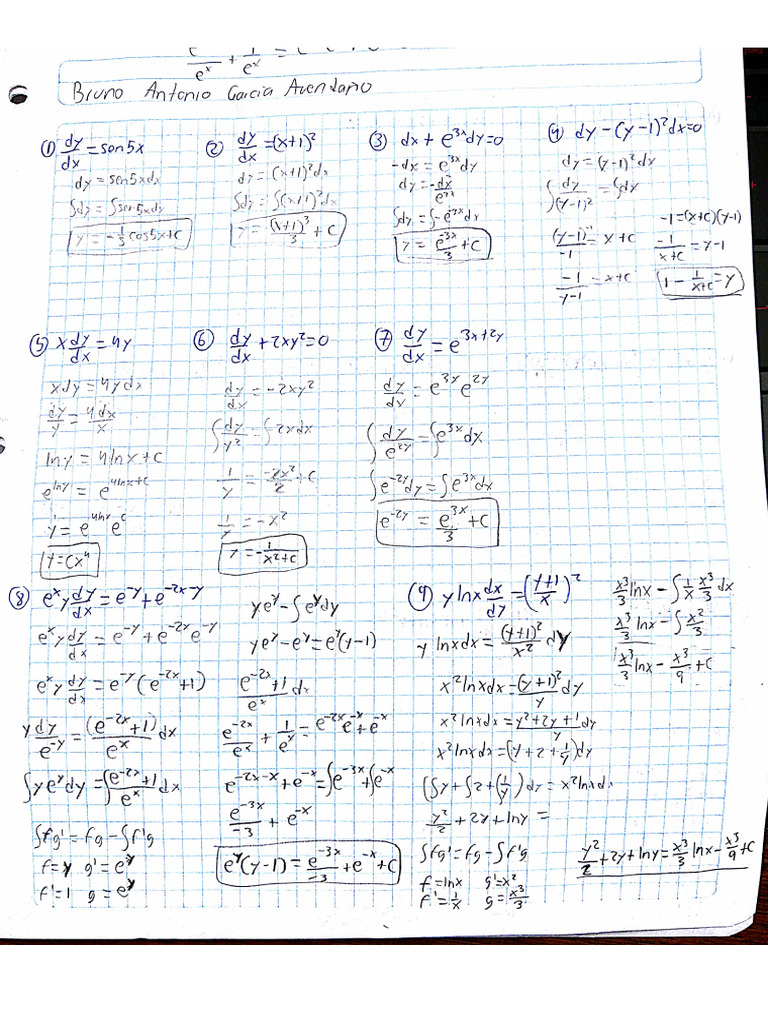 e^x + 1/e^x =
Bruno Antonio Garcia Avendaño
① dy/dx = sen5x
dy = sen5xdx
∫dy = ∫sen5xdy
y = -1/5 cos5x+C
② dy/dx = (x+1)²
dy = (x+1)²dx
∫dy = ∫(x+1)²dx
y = (x+1)³/3 + C
③ dx + e^3x dy=0
-dx = e^3x dy
dy = -dx/e^3x
∫dy = ∫-e^3x dx
y = e^-3x/3 + C
④ dy-(y-1)²dx=0
dy = (y-1)²dx
∫dy/(y-1)² = ∫dx
(y-1)^-1/-1 = x+C
-1/y-1 = x+C
-1=(x+C)(y-1)
-1/x+C = y-1
1 - 1/x+C = y
⑤ x dy/dx = 4y
xdy = 4ydx
dy/y = 4dx/x
lny = 4lnx+C
e^lny = e^4lnx+C
y = e^4lnx e^C
y=Cx⁴
⑥ dy/dx + 2xy²=0
dy/dx = -2xy²
∫dy/y² = ∫-2xdx
1/y = -2x²/2 + C
1/y = -x²
y = -1/x²+C
⑦ dy/dx = e^3x+2y
dy/dx = e^3x e^2y
∫dy/e^2y = ∫e^3x dx
∫e^-2y dy = ∫e^3x dx
e^-2y = e^3x/3 + C
⑧ e^x y dy/dx = e^-y + e^-2x-y
e^x y dy/dx = e^-y + e^-2x e^-y
e^x y dy/dx = e^-y(e^-2x+1)
y dy/e^-y = (e^-2x+1)/e^x dx
∫ye^y dy = ∫e^-2x+1/e^x dx
∫fg' = fg - ∫f'g
f=y g'=e^y
f'=1 g=e^y
ye^y - ∫e^y dy
ye^y - e^y = e^y(y-1)
e^-2x+1/e^x dx
e^-2x/e^x + 1/e^x = e^-2x e^-x + e^-x
e^-2x-x + e^-x = ∫e^-3x + ∫e^-x
e^-3x/-3 + e^-x
e^y(y-1) = e^-3x/-3 + e^-x + C
⑨ ylnx dx/dy = (y+1/x)²
y lnxdx = (y+1)²/x² dy
x²lnxdx = (y+1)²/y dy
x²lnxdx = y²+2y+1/y dy
x²lnxdx = (y+2+1/y)dy
(∫y+∫2+∫1/y)dy = x²lnxdx
y²/2 + 2y + lny =
∫fg' = fg - ∫f'g
f=lnx g'=x²
f'=1/x g=x³/3
x³/3 lnx - ∫1/x x³/3 dx
x³/3 lnx - ∫x²/3
x³/3 lnx - x³/9 + C
y²/2 + 2y + lny = x³/3 lnx - x³/9 + C